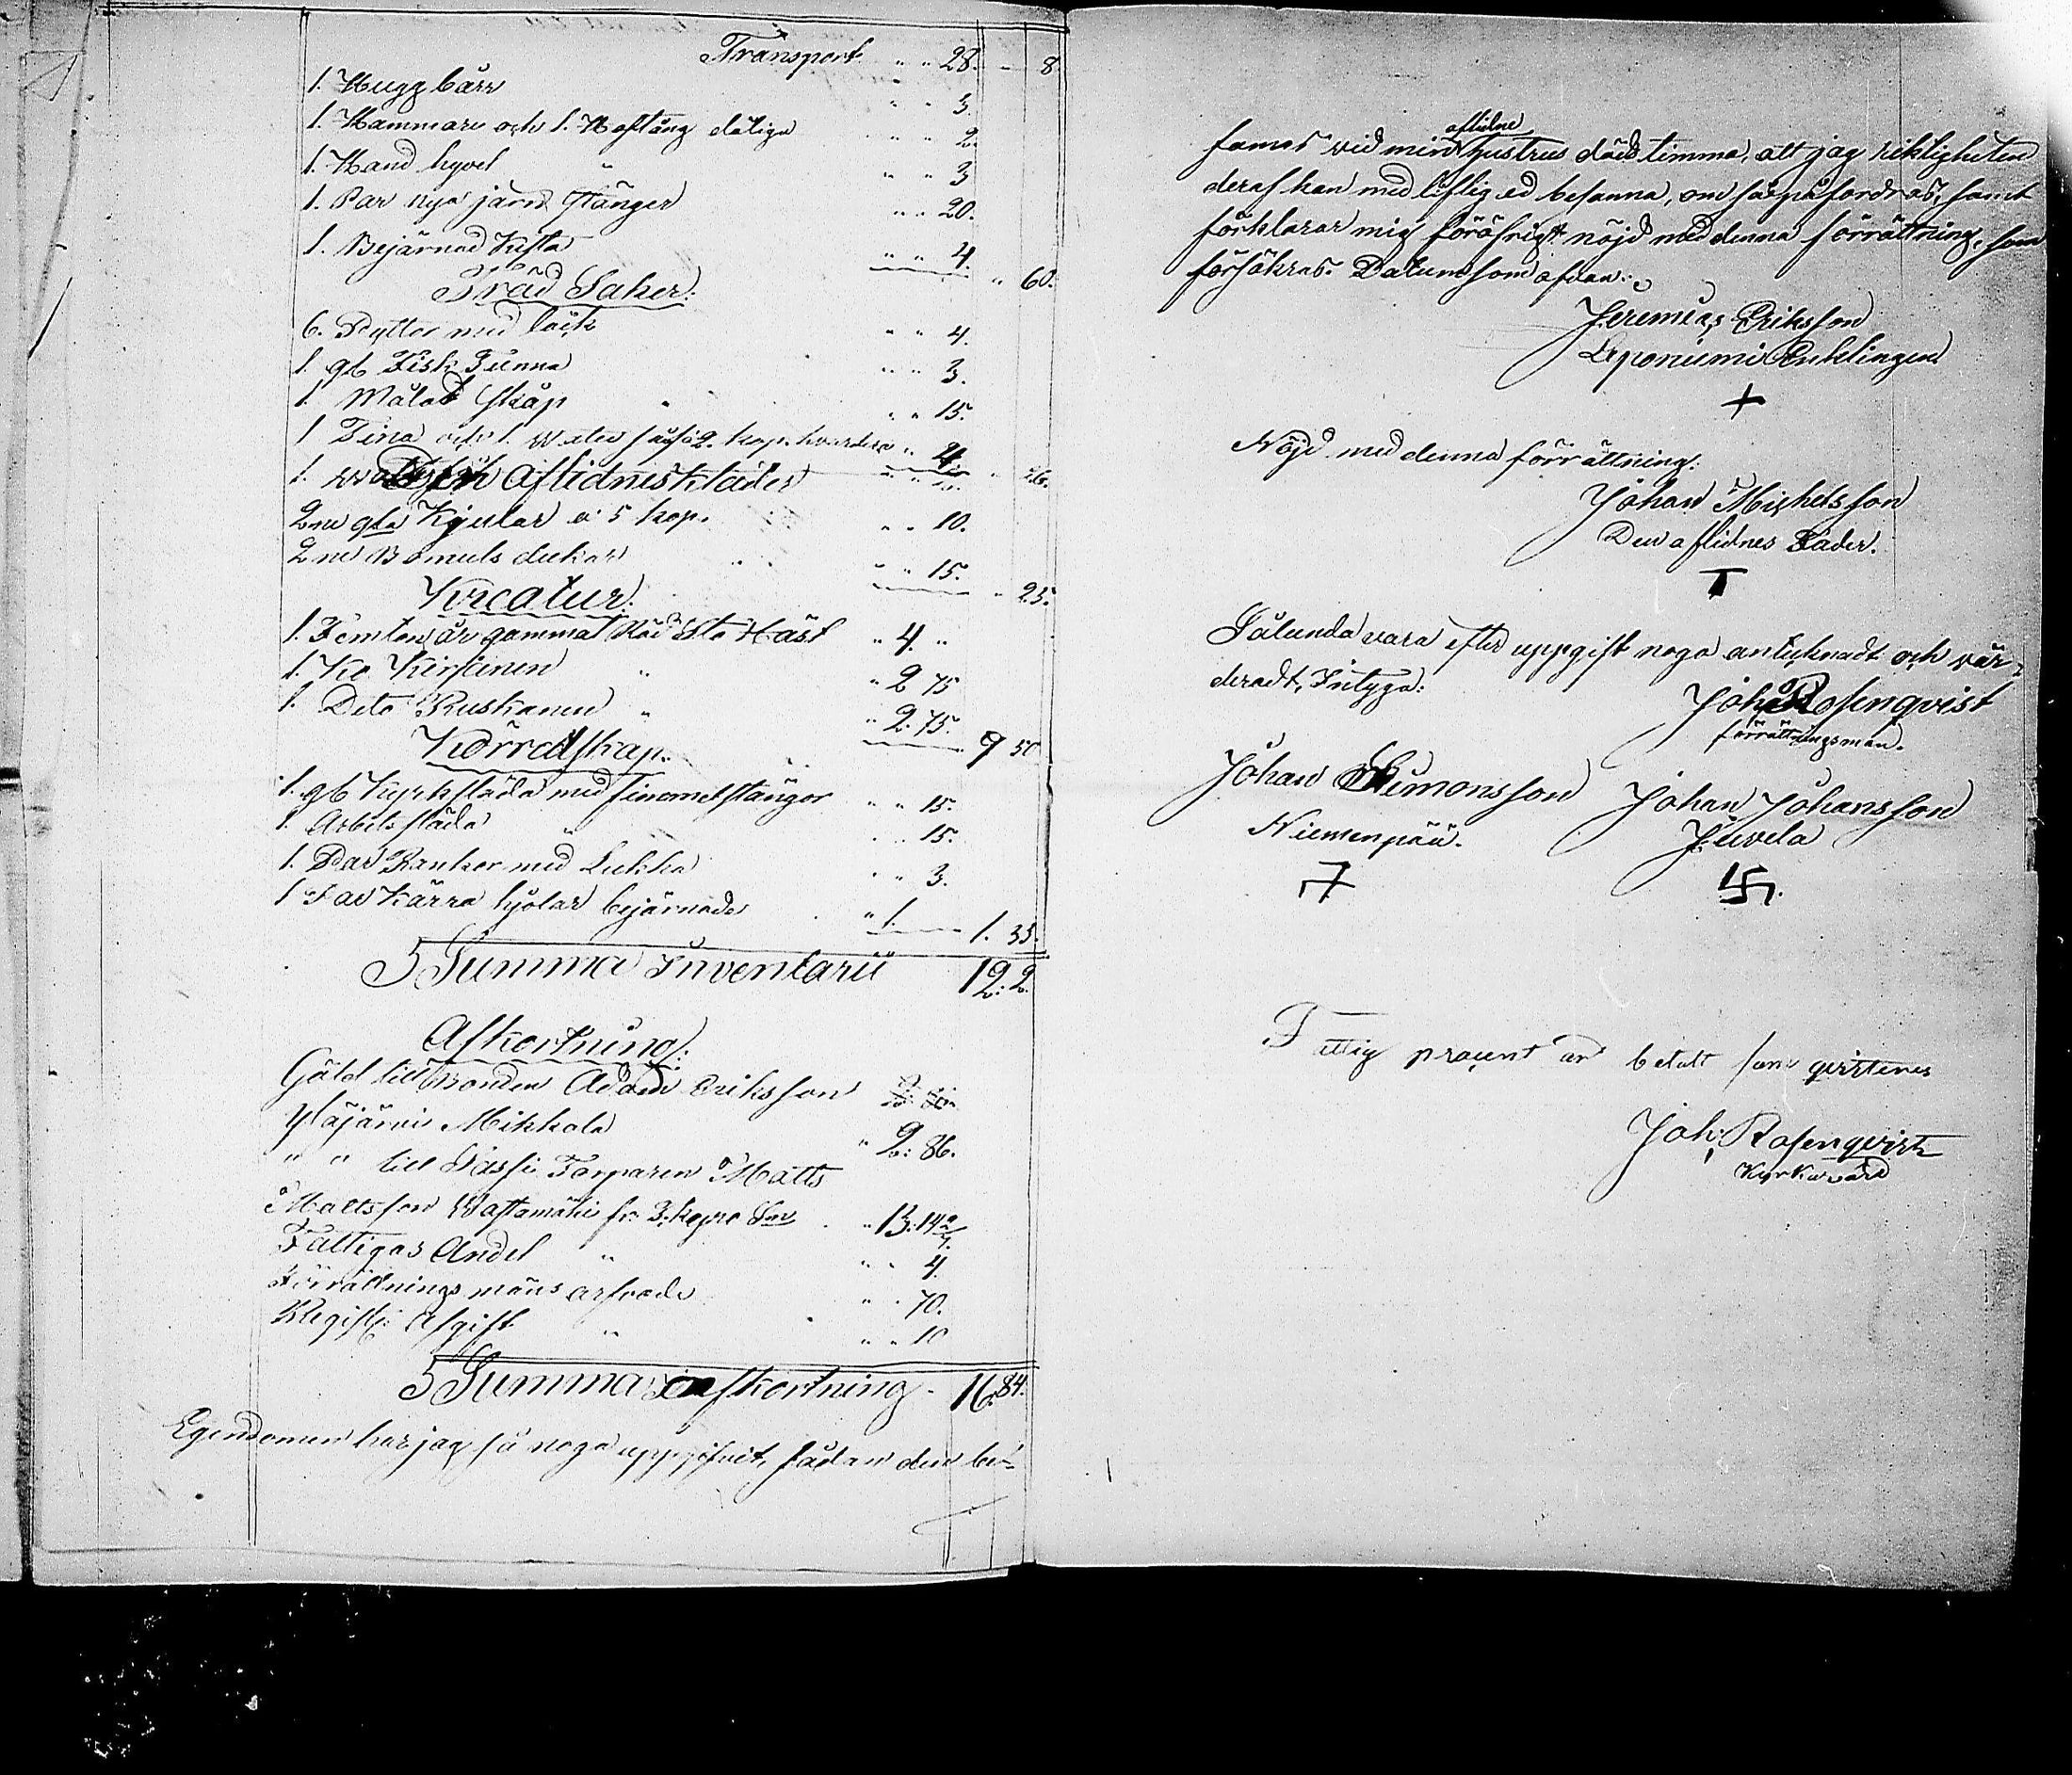 Transport " " 28. - 8
1. Huggbårr " " 3.
1. Hammare och 1. Hoftång dåliga " " 2.
1. Hand hyvel " " " 3
1. Par nya järn stänger " " 20.
1. Bejärnad Kista " " 4. " 60.
Träd Saker:
6. Byttor med låck " " 4.
1. gl Fisk Tunna " " 3.
1. Målat Skåp " " " 15.
1 Tina och 1. så 2. kop. hvardera " 4. " 26.
1. Den Aflidnes kläder
2ne gla Kjolar a 5 kop. " " 10.
2ne Bomuls dukar " " 15. " 25.
Kreatur:
1. Femton år gammal Röd Sto Häst " 4. "
1. Ko Kirjunen " " 2 75
1. Deto Ruskanen " " 2: 75. 9 50
Körredskap.
1. gl Kyrksläda med fimmelstänger " " 15.
1. Arbetssläda " " " 15.
1. Par Bankor med Lukka " " 3.
1 Par Kärra hjolar bejärnade " 1. 1. 33.
Summa Inventarii 12: 2.
Afkortning:
Gäld till Bonden Adam Eriksson
Yläjärvi Mikkola " 2: 86.
" " till Lassi Torparen Matts
Mattsson Wastamäki fr: 3. " 13: 14 2/7.
Fattigas Andel " " " 4.
Förrättnings mäns arfvode " " 70.
Regist: Afgift " " " 10
Summa afkortning - 16. 84.
Egendomen har jag så noga uppgifvit, sådan den be-
aflidne
fanns vid min hustrus dödstimma, att jag riktigheten
deraf kan med liflig ed besanna, om så påfordras, samt
förklarar mig föröfrigt nöjd med denna förrättning, som
försäkras. Datum som ofvan:
Jeremias Eriksson
Leponiemi Enklingen
Nöjd med denna förrättning:
Johan Michelsson
Den aflidnes Fader.
Sålunda vara efter uppgift noga antecknadt och vär-
deradt, Intyga:
Joh: Rosenqvist
förrättningsman.
Johan Simonsson Johan Johansson
Niemenpää. Juvela
Fattig procent är betalt som qvitteras
Joh: Rosenqvist
Kyrkovärd